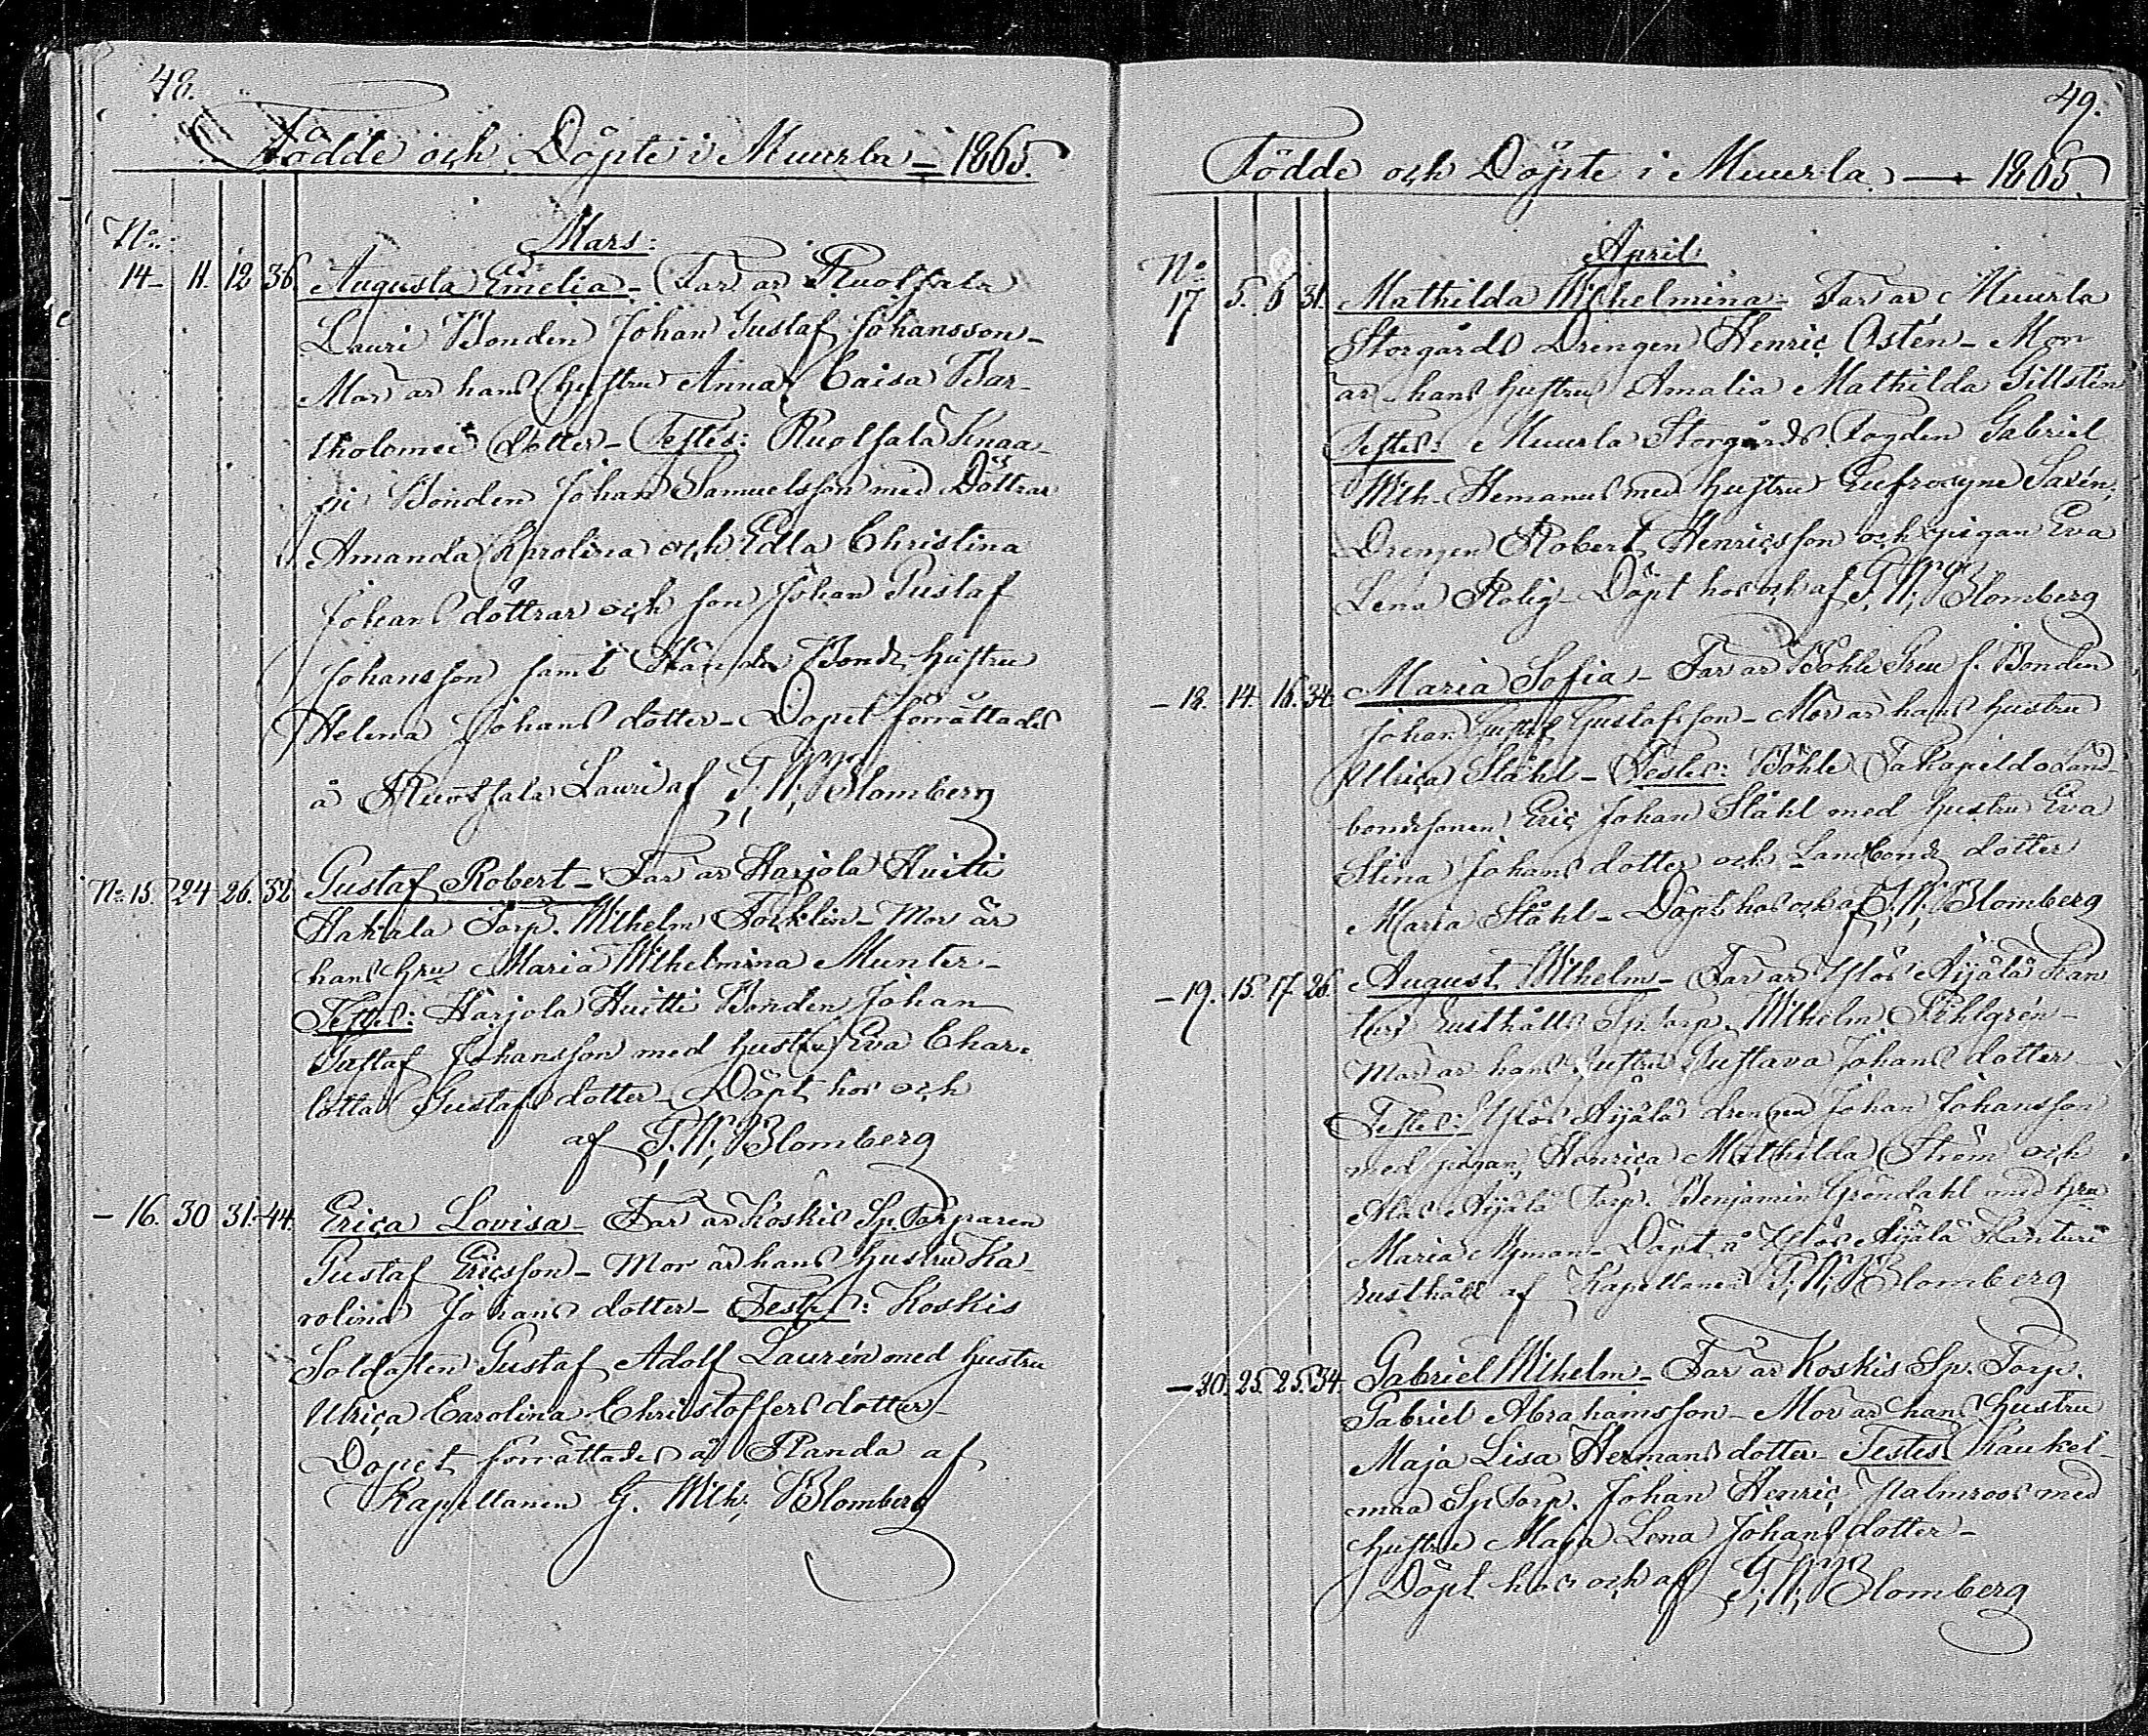 48.
Födde och Döpte i Muurla – 1865.
No.
Mars:
14– 11. 12 36. Augusta Emelia – Far är Ruotsala
Lauri Bonden Johan Gustaf Johansson –
Mor är hans hustru Anna Caisa Bar-
tholomei dotter – Testes: Ruotsala Knaa-
pi Bonden Johan Samuelsson med Döttrar
Amanda Karolina och Edla Christina
Johans döttrar och son Johan Gustaf
Johansson samt Bonde hustru
Helena Johans dotter – Dopet förrättades
å Ruotsala Lauri af G. W. Blomberg
No 15. 24 26. 32 Gustaf Robert – Far är Harjola Huitti
Hakula Torp. Wilhelm Focklin – Mor är
hans hru Maria Wilhelmina Munter –
Testes: Harjola Huitti Bonden Johan
Gustaf Johansson med hustru Eva Char-
lotta Gustafs dotter – Döpt hos och
af G. W. Blomberg
– 16. 30 31. 44. Erica Lovisa – Far är Koskis Sp. Torparen
Gustaf Ericsson – Mor är hans hustru Ka-
rolina Johans dotter – Testes: Koskis
Soldaten Gustaf Adolf Laurén med hustru
Ulrica Carolina Christoffers dotter –
Dopet förrättades å Randa af
Kapellanen G. Wilh. Blomberg
49.
Födde och Döpte i Muurla. — 1865.
April:
No
17 5. 6 31. Mathilda Wilhelmina – Far är Muurla
Storgårds Drengen Henric Östén – Mor
är hans hustru Amalia Mathilda Gillstén
Testes: Muurla Storgårds Fogden Gabriel
Wilh. Hemanus med hustru Eufrosyne Saxén,
Drengen Robert Henricsson och pigan Eva
Lena Rolig – Döpt hos och af G. W. Blomberg
– 18. 14. 16. 34. Maria Sofia – Far är Böhle Greu f. Bonden
Johan Gustaf Gustafsson – Mor är hans hustru
Ulrica Ståhl – Testes: Böhle Takapeldo Land-
bondesonen Eric Johan Ståhl med hustru Eva
Stina Johans dotter och Landbonde dotter
Maria Ståhl – Döpt hos och af G. W. Blomberg
– 19. 15. 17. 26. August Wilhelm – Far är Ylös Äijälä Kan
turi Rusthålls Sp. Torp. Wilhelm Pihlgrén –
Mor är hans hustru Gustava Johans dotter
Testes: Ylös Äijälä drengen Johan Johansson
med pigan Henrica Mathilda Ström och
Alas Äijälä Torp. Benjamin Gröndahl med hru
Maria Nyman – Döpt å Ylös Äijälä Kanturi
Rusthåll af Kapellanen G. W. Blomberg
– 20. 25. 25. 34. Gabriel Wilhelm – Far är Koskis Sp. Torp.
Gabriel Abrahamsson – Mor är hans hustru
Maja Lisa Hermans dotter – Testes Kaukel-
maa Sp Torp. Johan Henric Palmroos med
hustru Maja Lena Johans dotter –
Döpt hos och af G. W. Blomberg